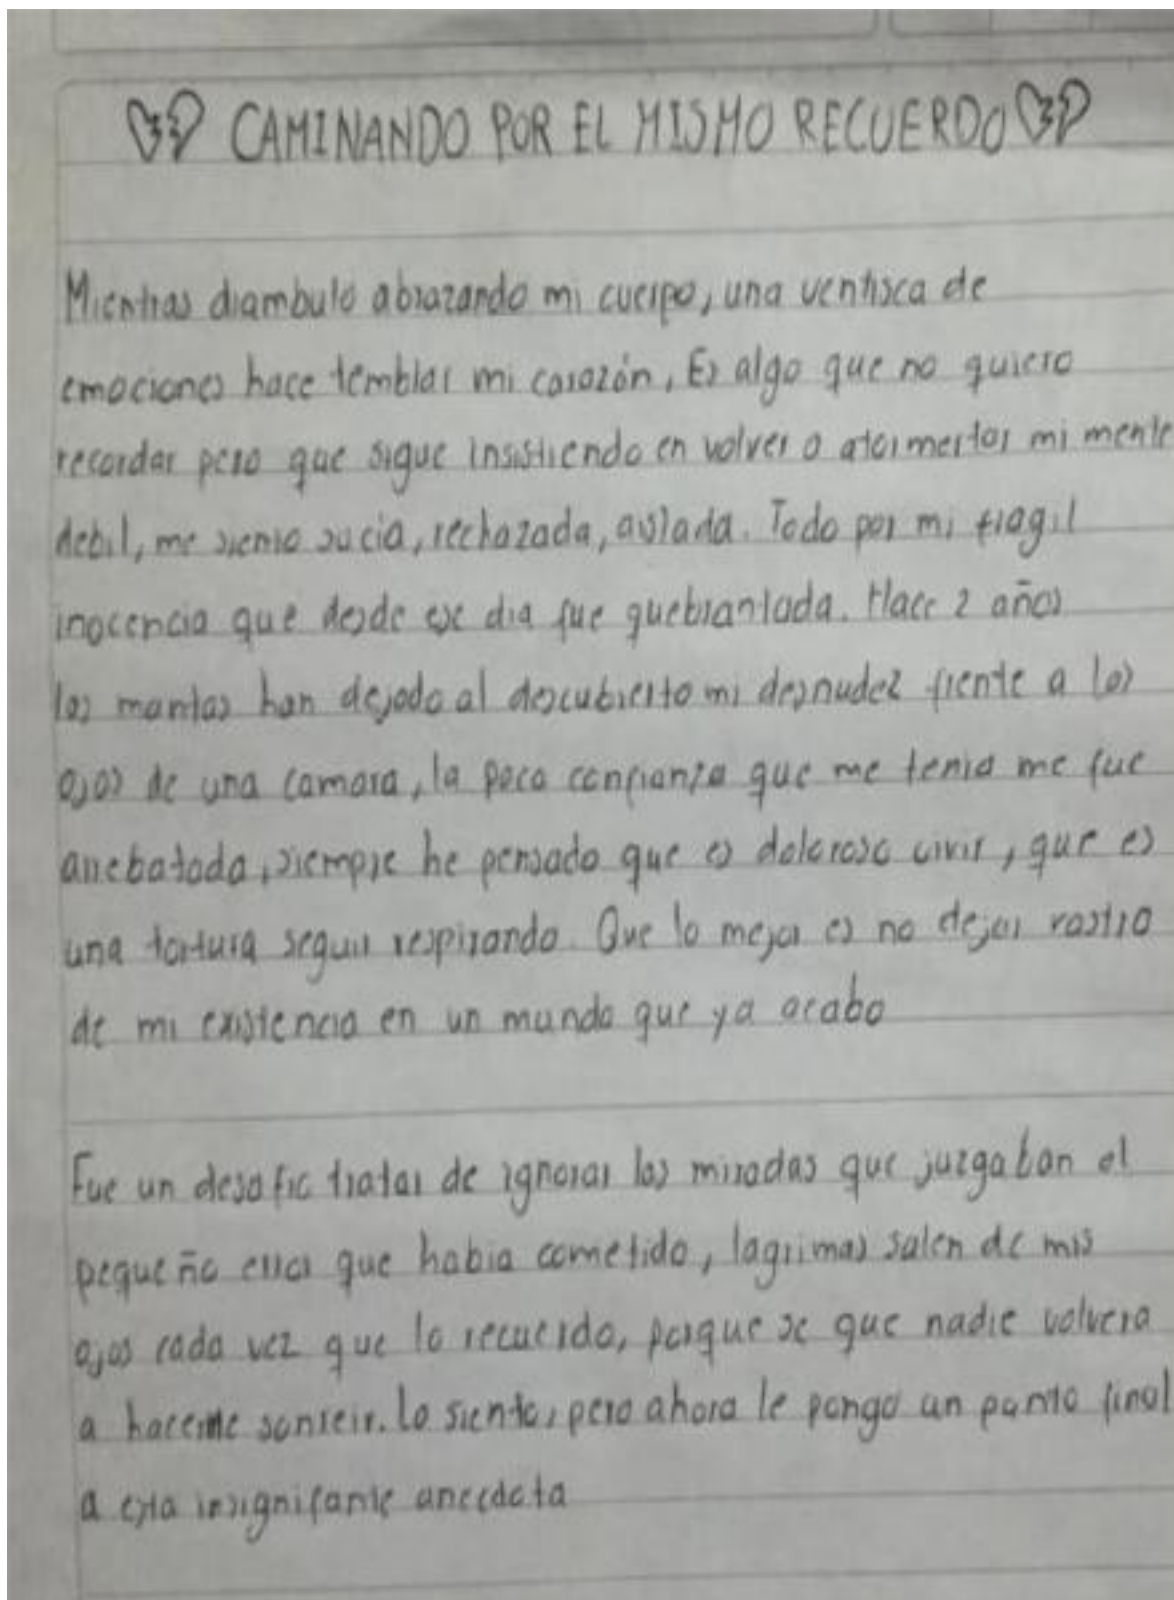 CAMINANDO POR EL MISMO RECUERDO
Mientras diambulo abrazando mi cuerpo, una ventisca de
emociones hace temblar mi corazón, Es algo que no quiero
recordar pero que sigue insistiendo en volver a atormertar mi mente
debil, me siento sucia, rechazada, aislada. Todo por mi fragil
inocencia que desde ese dia fue quebrantada. Hace 2 años
las mantas han dejado al descubierto mi desnudez frente a los
ojos de una camara, la poca confianza que me tenia me fue
arrebatada, siempre he pensado que es doloroso vivir, que es
una tortura seguir respirando. Que lo mejor es no dejar rastro
de mi existencia en un mundo que ya acabo
Fue un desafio tratar de ignorar las miradas que juzgaban el
pequeño error que habia cometido, lagrimas salen de mis
ojos cada vez que lo recuerdo, porque se que nadie volvera
a hacerme sonreir. Lo siento, pero ahora le pongo un punto final
a esta insignifante anecdota